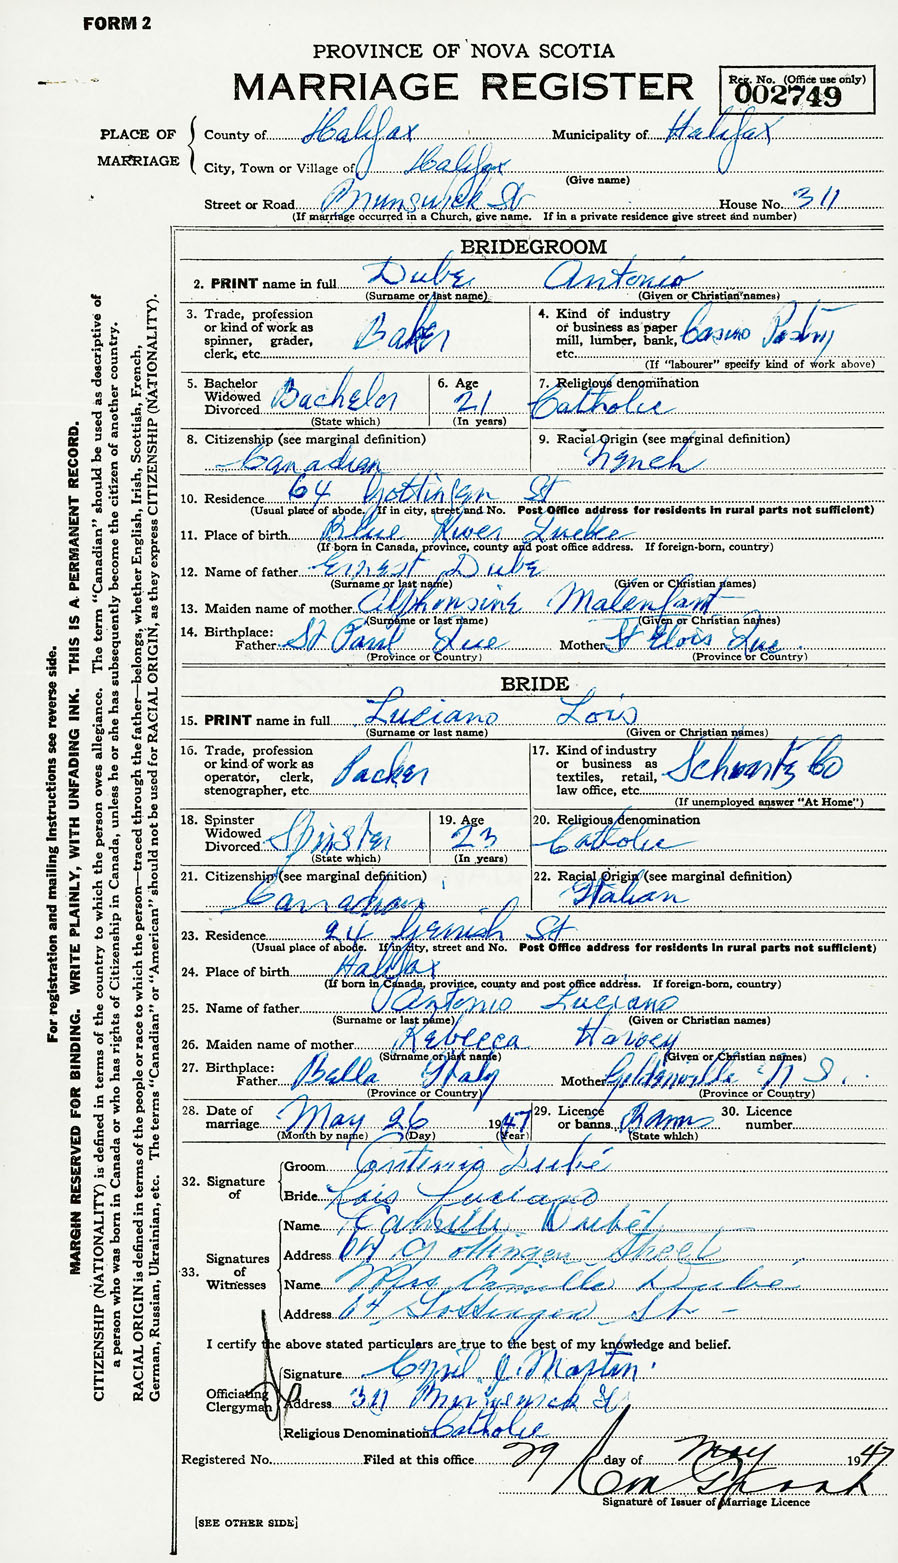 FORM 2
PROVINCE OF NOVA SCOTIA
MARRIAGE REGISTER
Reg. No. (Office use only)
002749
PLACE OF MARRIAGE
County of Halifax Municipality of Halifax
City, Town or Village of Halifax
(Give name)
Street or Road Brunswick St House No. 311
(If marriage occurred in a Church, give name. If in a private residence give street and number)
BRIDEGROOM
2. PRINT name in full Dube Antonio
(Surname or last name) (Given or Christian names)
3. Trade, profession or kind of work as spinner, grader, clerk, etc. Baker
4. Kind of industry or business as paper mill, lumber, bank, etc. Casino Pastry
(If "labourer" specify kind of work above)
5. Bachelor Widowed Divorced Bachelor
(State which)
6. Age 21
(In years)
7. Religious denomination Catholic
8. Citizenship (see marginal definition) Canadian
9. Racial Origin (see marginal definition) French
10. Residence 64 Gottingen St
(Usual place of abode. If in city, street and No. Post Office address for residents in rural parts not sufficient)
11. Place of birth Blue River Quebec
(If born in Canada, province, county and post office address. If foreign-born, country)
12. Name of father Ernest Dube
(Surname or last name) (Given or Christian names)
13. Maiden name of mother Alphonsine Malenfant
(Surname or last name) (Given or Christian names)
14. Birthplace: Father St Paul Que Mother St Elois Que.
(Province or Country) (Province or Country)
BRIDE
15. PRINT name in full Luciano Lois
(Surname or last name) (Given or Christian names)
16. Trade, profession or kind of work as operator, clerk, stenographer, etc. Packer
17. Kind of industry or business as textiles, retail, law office, etc. Schwartz Co
(If unemployed answer "At Home")
18. Spinster Widowed Divorced Spinster
(State which)
19. Age 23
(In years)
20. Religious denomination Catholic
21. Citizenship (see marginal definition) Canadian
22. Racial Origin (see marginal definition) Italian
23. Residence 24 Gerrish St
(Usual place of abode. If in city, street and No. Post Office address for residents in rural parts not sufficient)
24. Place of birth Halifax
(If born in Canada, province, county and post office address. If foreign-born, country)
25. Name of father Antonio Luciano
(Surname or last name) (Given or Christian names)
26. Maiden name of mother Rebecca Harvey
(Surname or last name) (Given or Christian names)
27. Birthplace: Father Bella Italy Mother Goldenville N S.
(Province or Country) (Province or Country)
28. Date of marriage May 26 1947
(Month by name) (Day) (Year)
29. Licence or banns Banns
(State which)
30. Licence number
32. Signature of
Groom Antonio Dubé
Bride Lois Luciano
33. Signatures of Witnesses
Name Camille Dubé
Address 64 Gottingen Street
Name Mrs Camille Dubé
Address 64, Gottingen St-
I certify the above stated particulars are true to the best of my knowledge and belief.
Officiating Clergyman
Signature Cyril J. Martin
Address 311 Brunswick St
Religious Denomination Catholic
Registered No. Filed at this office 29 day of May 1947
Signature of Issuer of Marriage Licence
[SEE OTHER SIDE]
For registration and mailing instructions see reverse side.
MARGIN RESERVED FOR BINDING. WRITE PLAINLY, WITH UNFADING INK. THIS IS A PERMANENT RECORD.
CITIZENSHIP (NATIONALITY) is defined in terms of the country to which the person owes allegiance. The term "Canadian" should be used as descriptive of
a person who was born in Canada or who has rights of Citizenship in Canada, unless he or she has subsequently become the citizen of another country.
RACIAL ORIGIN is defined in terms of the people or race to which the person—traced through the father—belongs, whether English, Irish, Scottish, French,
German, Russian, Ukrainian, etc. The terms "Canadian" or "American" should not be used for RACIAL ORIGIN, as they express CITIZENSHIP (NATIONALITY).